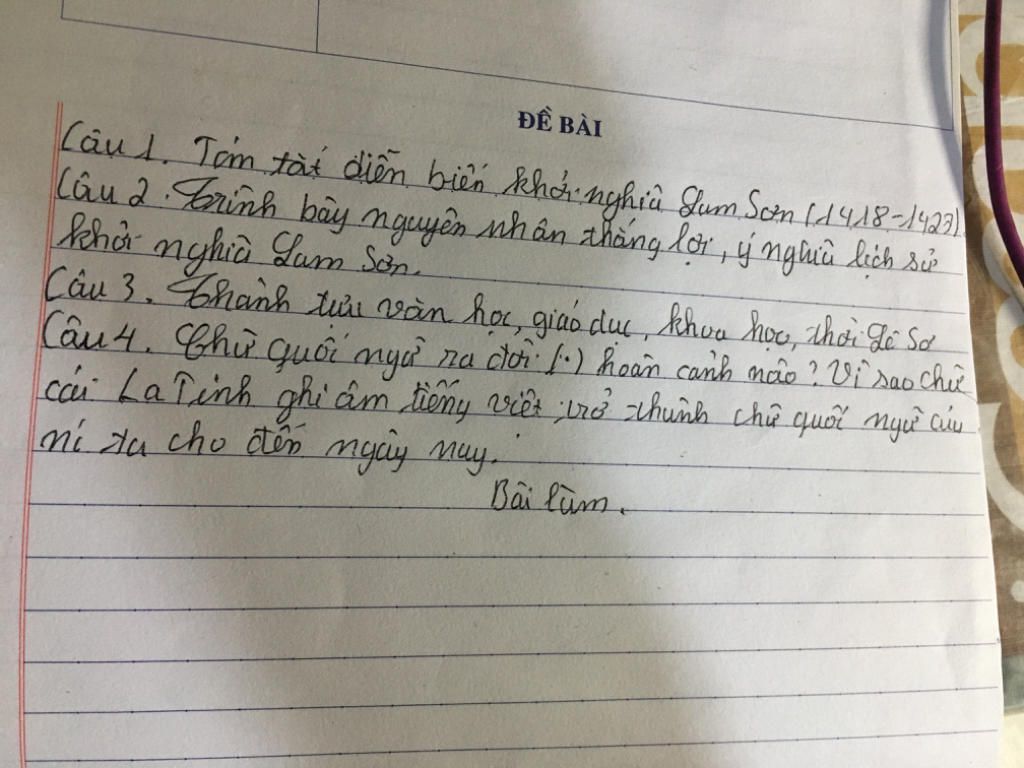 ĐỀ BÀI
Câu 1. Tóm tắt diễn biến khởi nghĩa Lam Sơn (1418-1423)
Câu 2. Trình bày nguyên nhân thắng lợi, ý nghĩa lịch sử
khởi nghĩa Lam Sơn.
Câu 3. Thành tựu văn học, giáo dục, khoa học, thời Lê Sơ
Câu 4. Chữ quốc ngữ ra đời (.) hoàn cảnh nào? Vì sao chữ
cái La Tinh ghi âm tiếng việt trở thành chữ quốc ngữ của
nc ta cho đến ngày nay.
Bài làm.